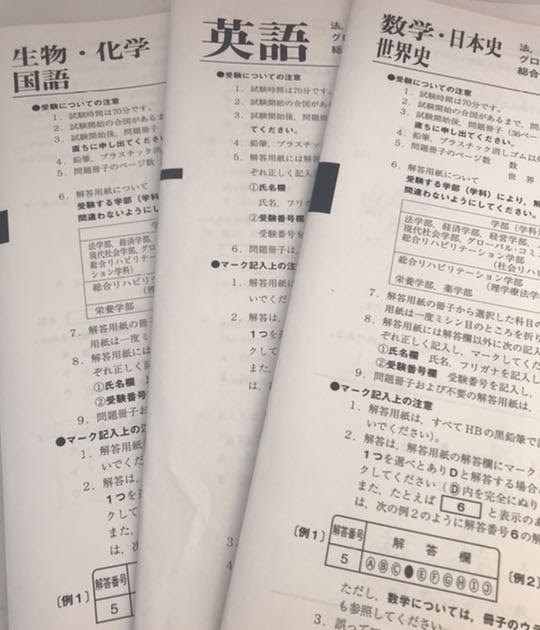 生物・化学
国語
●受験についての注意
1. 試験時間は70分です。
2. 試験開始の合図があるま
3. 試験開始後、問題冊子
直ちに申し出てください。
4. 鉛筆、プラスチック消
5. 問題冊子のページ数
6. 解答用紙について
受験する学部(学科)
間違わないようにし
法学部、経済学部、
現代社会学部、グロ
総合リハビリテーシ
ション学科)
総合リハビリ
栄養学部
7. 解答用紙の冊
用紙は一度ミ
8. 解答用紙に
ぞれ正しく
①氏名欄
②受験番
9. 問題冊子お
●マーク記入上
1. 解答用
いでくだ
2. 解答は
1つを
クして
また、
は、次
[例1]
解答番号
5
英語
法,
グロ
総合
●受験についての注意
1. 試験時間は70分です。
2. 試験開始の合図があ
3. 試験開始後、問題
てください。
4. 鉛筆、プラスチッ
5. 解答用紙には解答
①氏名欄
氏名、フリガ
②受験番号欄
受験番号
6. 問題冊子は、
●マーク記入上の注
1. 解答用紙
いでくだ
2. 解答は、
1つを
クして
また、
は、
3.
4
数学・日本史
世界史
法,
グロ
総合
●受験についての注意
1. 試験時間は70分です。
2. 試験開始の合図があるまで、問
3. 試験開始後、問題冊子(36ペー
直ちに申し出てください。
4. 鉛筆、プラスチック消しゴム以
5. 問題冊子のページ 数
世界
6. 解答用紙について
受験する学部(学科)により、解
間違わないようにしてください。
学部(学科
法学部、経済学部、経営学部、
現代社会学部、グローバル・コミ
総合リハビリテーション学部
(社会リハ
総合リハビリテーション学部
(理学療法
栄養学部、薬学部
7. 解答用紙の冊子から選択した科目の
用紙は一度ミシン目のところを折り
8. 解答用紙には解答欄以外に次の記入
ぞれ正しく記入し、マークしてくだ
①氏名欄 氏名、フリガナを記入し
②受験番号欄 受験番号を記入し、
9. 問題冊子および不要の解答用紙は、
●マーク記入上の注意
1. 解答用紙は、すべてHBの黒鉛筆で
いでください)。
2. 解答は、解答用紙の解答欄にマーク
1つを選べとありDと解答する場合
クしてください(Ⓓ内を完全にぬり
また、たとえば 6 と表示のあ
は、次の例2のように解答番号6の解
[例1]
解答番号 解答欄
5 ⒶⒷⒸ●ⒺⒻⒼⒽⒾⒿ
[例2]
ただし、数学については、冊子のウラ
も参照してください。
3. 誤って